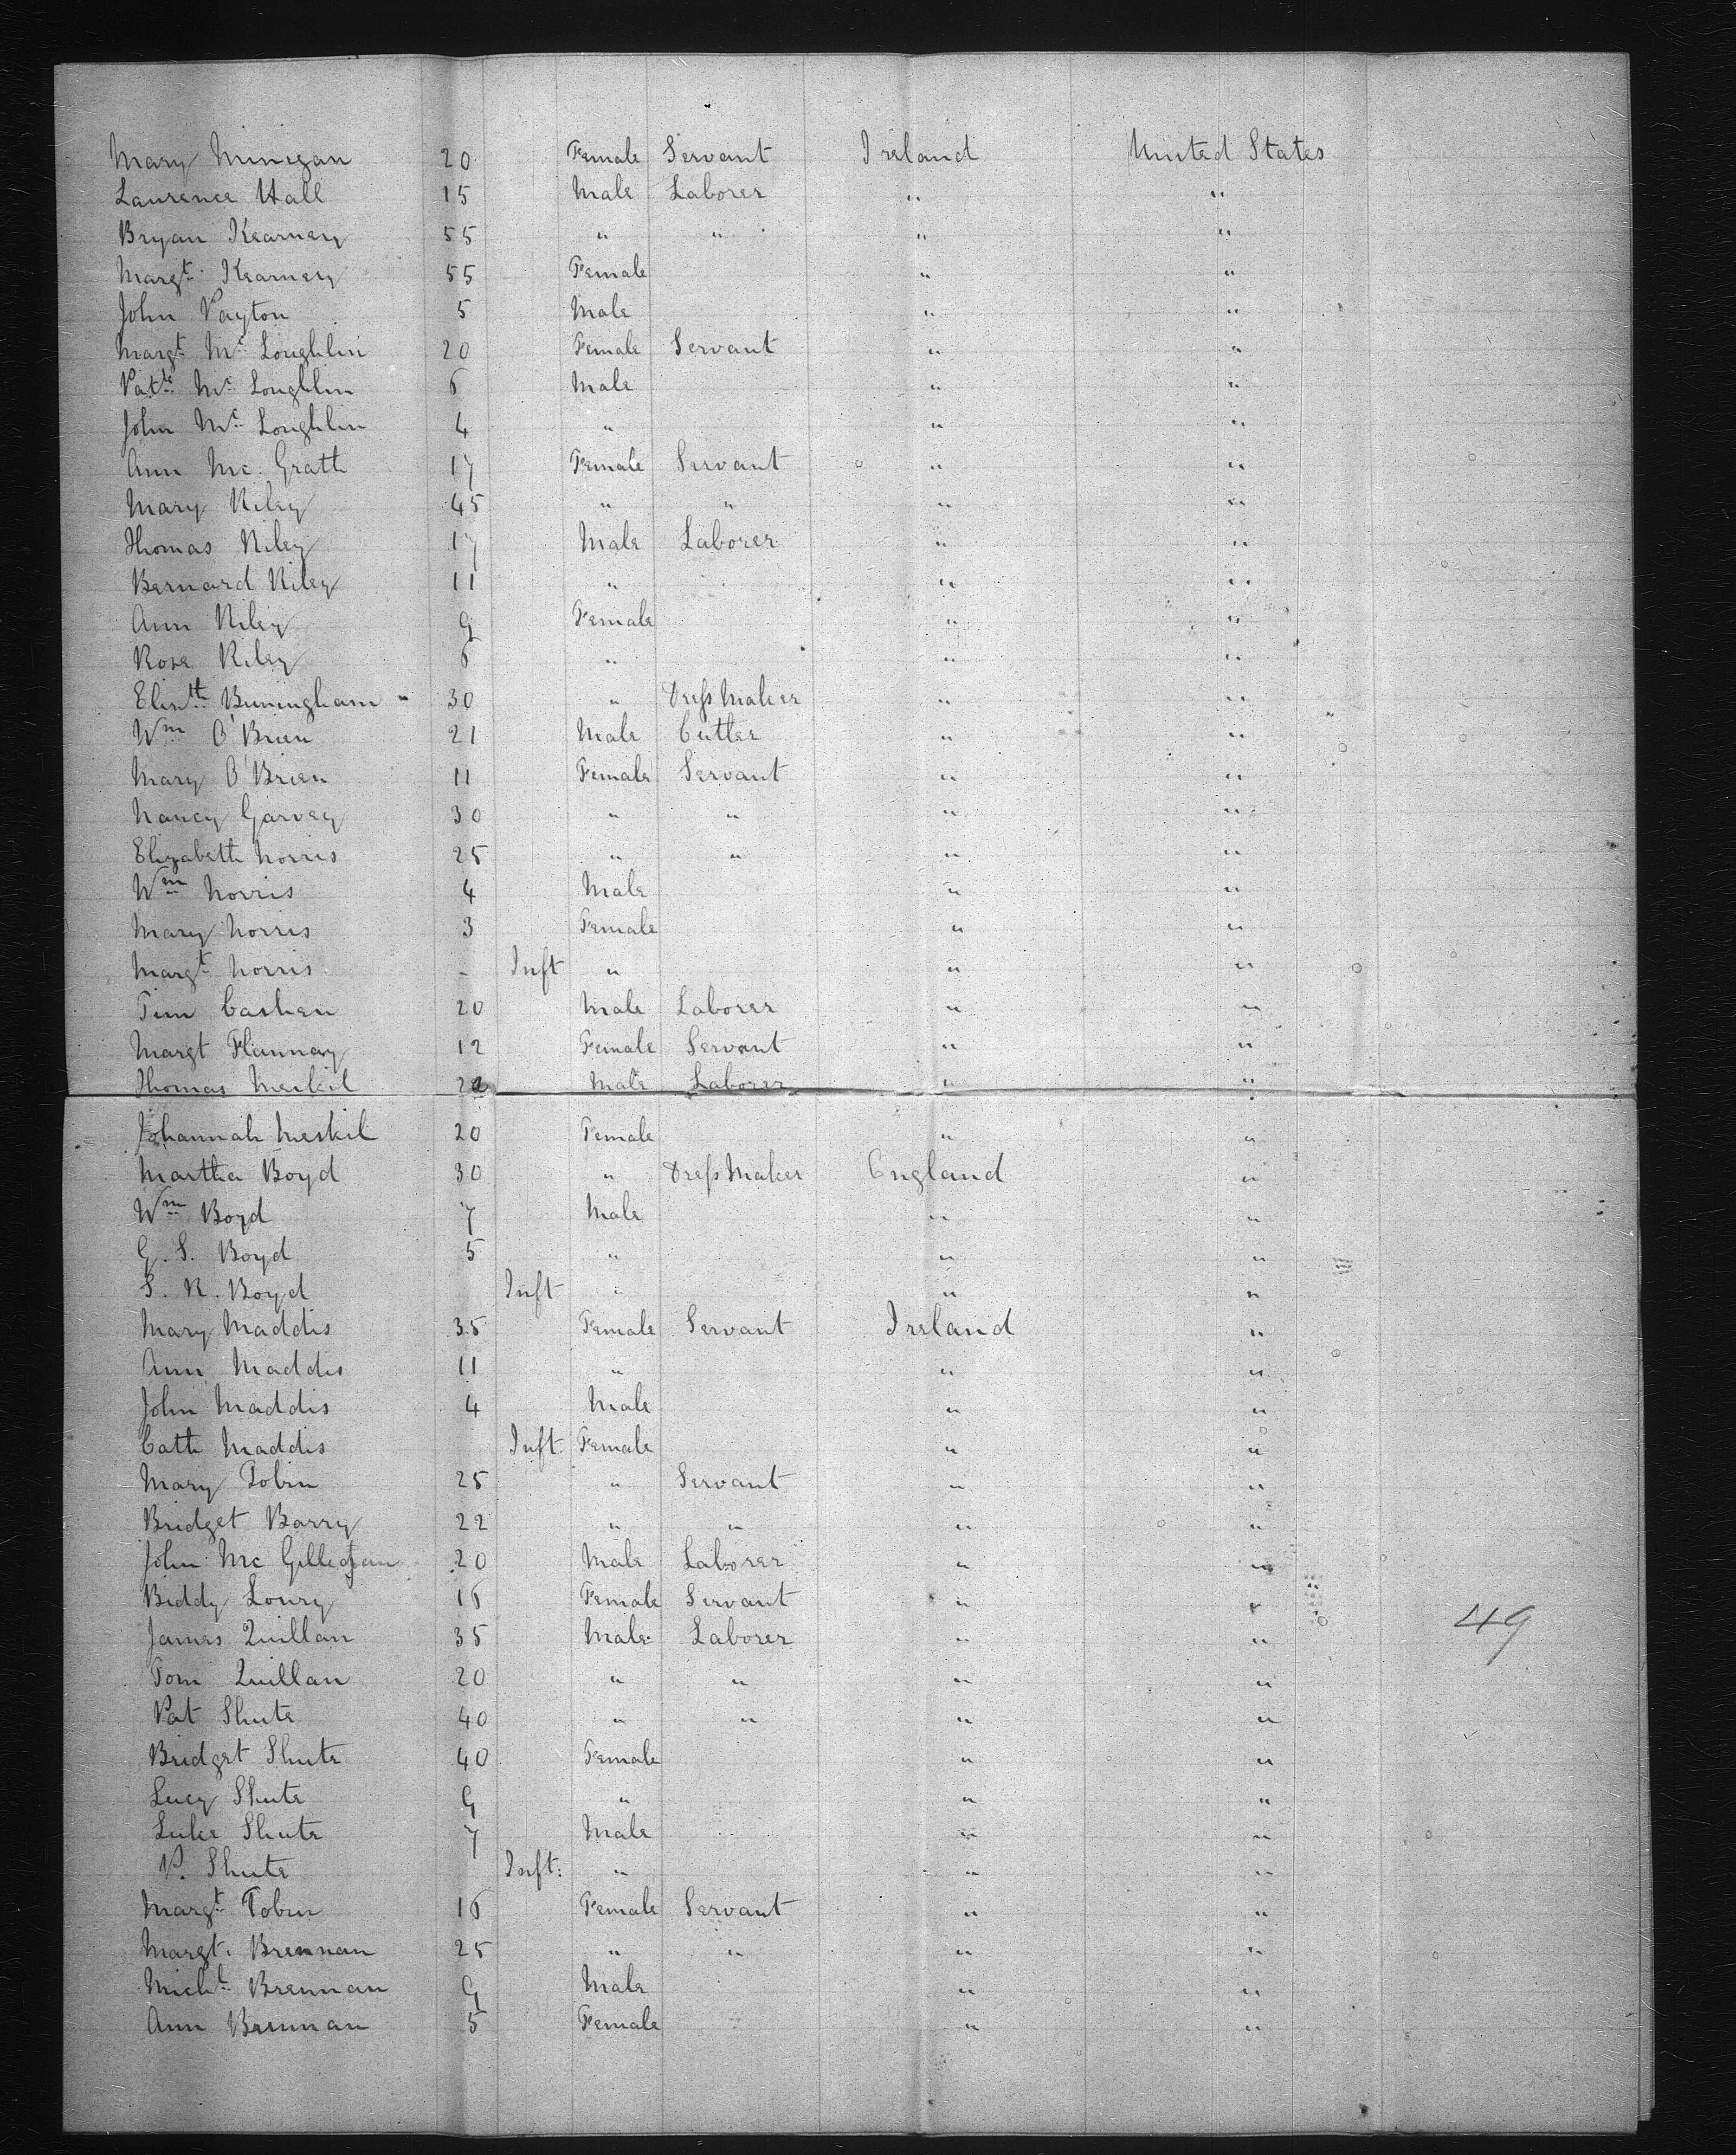 Mary Minegan 20 Female Servant Ireland United States
Laurence Hall 15 Male Laborer " "
Bryan Kearney 55 " " " "
Margt Kearney 55 Female " "
John Payton 5 Male " "
Margt Mc Loughlin 20 Female Servant " "
Patk Mc Loughlin 6 Male " "
John Mc Loughlin 4 " " "
Ann Mc. Grath 17 Female Servant " "
Mary Riley 45 " " " "
Thomas Riley 17 Male Laborer " "
Bernard Riley 11 " " "
Ann Riley 9 Female " "
Rose Riley 6 " " "
Elizth Burningham 30 " Dress Maker " "
Wm O'Brien 21 Male Cutler " "
Mary O'Brien 11 Female Servant " "
Nancy Garvey 30 " " " "
Elizabeth Norris 25 " " " "
Wm Norris 4 Male " "
Mary Norris 3 Female " "
Margt Norris - Inft " " "
Tim Cashen 20 Male Laborer " "
Margt Flannay 12 Female Servant " "
Thomas Meskil Male Laborer " "
Johannah Meskil 20 Female " "
Martha Boyd 30 " Dress Maker England "
Wm Boyd 7 Male " "
G. S. Boyd 5 " " "
S. R. Boyd Inft " " "
Mary Maddis 35 Female Servant Ireland "
Ann Maddis 11 " " "
John Maddis 4 Male " "
Cath Maddis Inft. Female " "
Mary Tobin 25 " Servant " "
Bridget Barry 22 " " " "
John Mc Gillegan 20 Male Laborer " "
Biddy Lowry 16 Female Servant " "
James Quillan 35 Male Laborer " " 49
Tom Quillan 20 " " " "
Pat Shute 40 " " " "
Bridget Shute 40 Female " "
Lucy Shute 9 " " "
Luke Shute 7 Male " "
P. Shute Inft: " " "
Margt Tobin 16 Female Servant " "
Margt. Brennan 25 " " " "
Michl Brennan 9 Male " "
Ann Brennan 5 Female " "